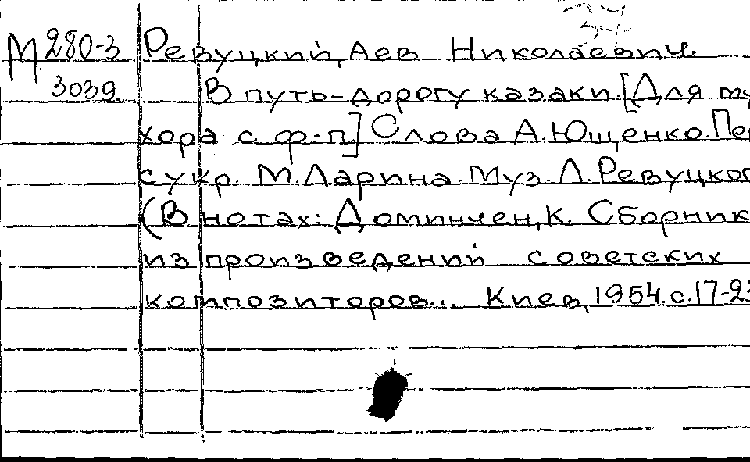 М 280-3 Ревуцкий, Лев Николаевич.
3039 В путь-дорогу казаки. [Для му
хора с ф-п] Слова А. Ющенко. Пер
с укр. М. Ларина. Муз. Л. Ревуцког
(В нотах: Доминчен, К. Сборник
из произведений советских
композиторов... Киев, 1954. с. 17-23